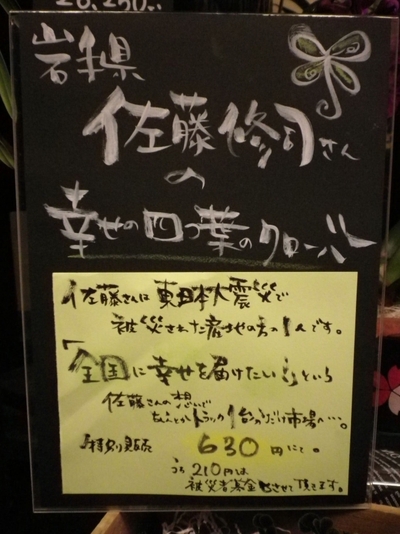 20,250
岩手県
佐藤修司さん
の
幸せの四つ葉のクローバー
佐藤さんは東日本大震災で
被災された産地の方の1人です。
「全国に幸せを届けたい」という
佐藤さんの想いで
なんとかトラック1台分だけ市場へ…。
特別販売 630円にて。
うち210円は
被災者基金とさせて頂きます。